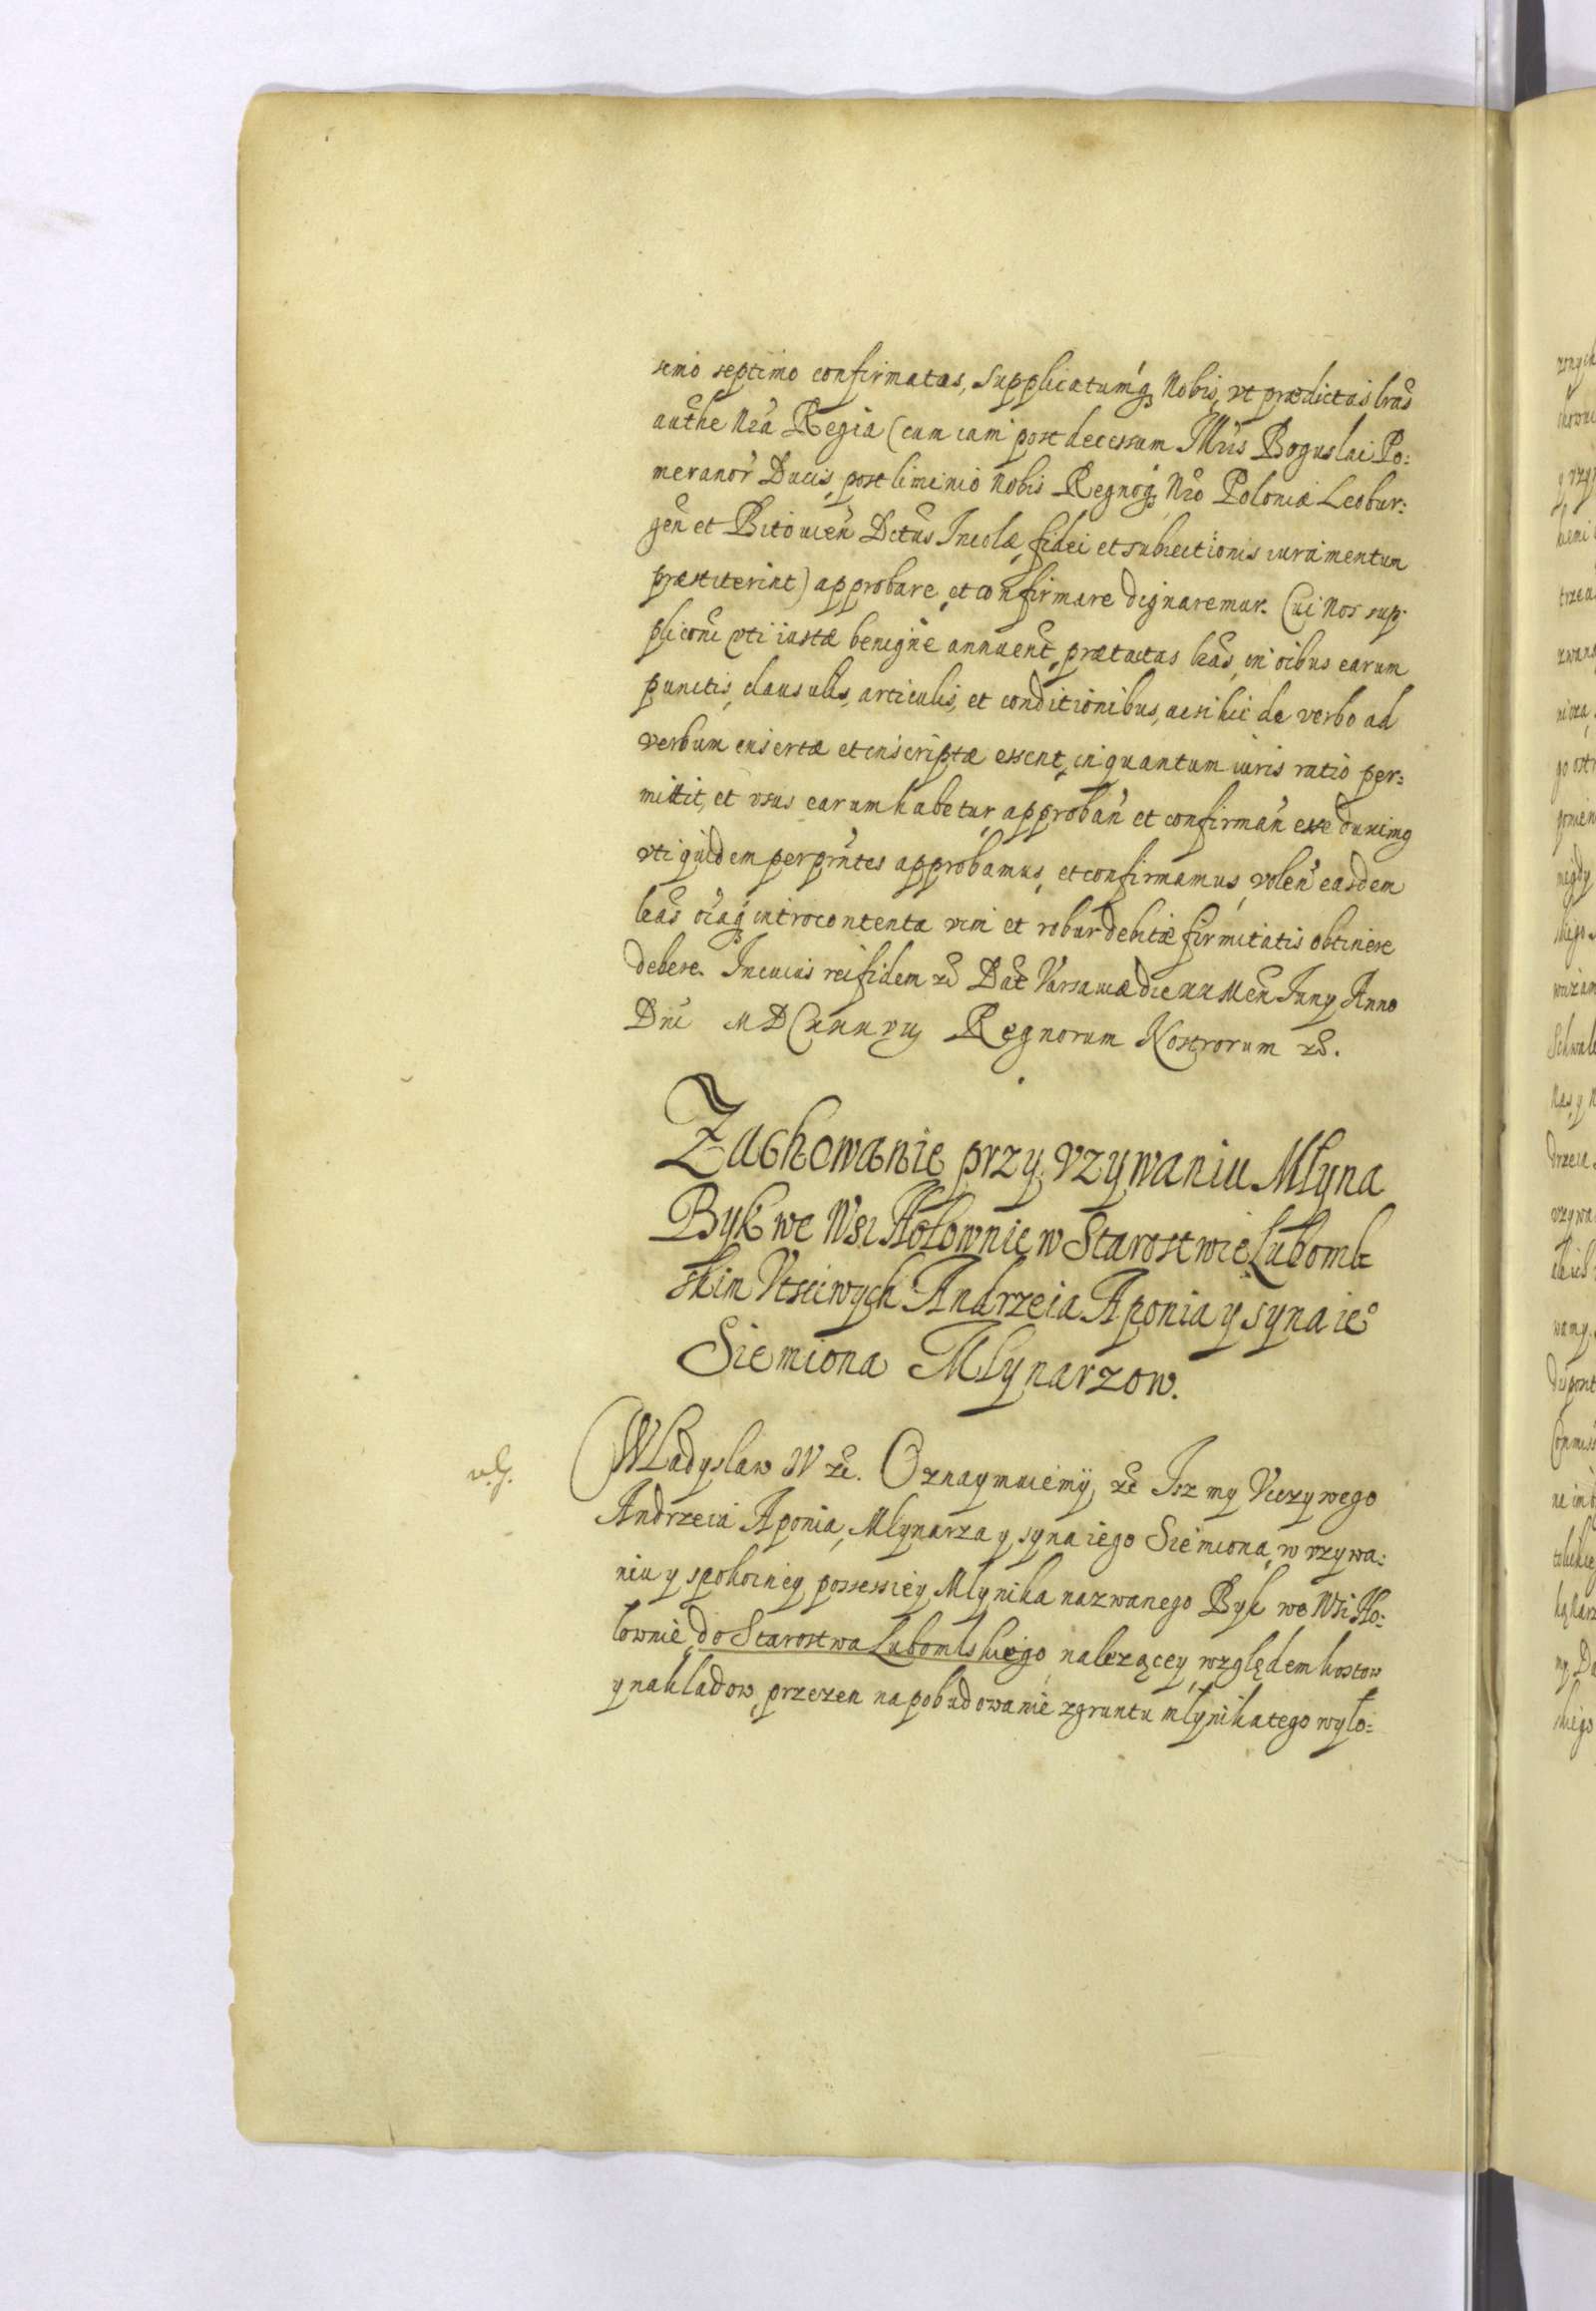 simo septimo confirmatas, supplicatumq́ Nobis, vt prædictas lr̃as
auth̃e Nr̃a Regia (cum iam post decessum Illr̃is Boguslai Po:
meranor̃ Ducis, postliminio Nobis Regnoq́ Nr̃o Poloniæ Leobur:
gen̄ et Bitouien̄ Dctũs Incolæ, fidei et subiectionis iuramentum
præstiterint) approbare, et confirmare dignaremur. Cui Nos sup
plicoñi vti iustæ benigne annuent̃, prætactas lr̃as, in oibus earum
punctis, clausulis, articulis, et conditionibus, acsi hic de verbo ad
verbum insertæ et inscriptæ essent, in quantum iuris ratio per:
mittit, et vsus earum habetur, approban̄ et confirman̄ esse duximg
vti quidem per prñtes approbamus, et confirmamus, volen̄ easdem
lr̃as oiãq́ intro contenta vim et robur debitæ firmitatis obtinere
debere. In cuius rei fidem &c̃ Dat̃ Varsauiæ die XX Men̄ Juny Anno
Dñi MDCXXXVIJ Regnorum Nostrorum &c̃.
Zachowanie przy vzywaniu Młyna
Byk we Wsi Hołownie w Starostwie Lubomls
skim Vtsciwych Andrzeia Aponia y syna ie°
Siemiona Młynarzow.
Wladyslaw IV &c̃. Oznaymuiemÿ, &c̃ Isz my Vczywego
Andrzeia Aponia, Mlynarza y syna iego Siemiona, w vzywa:
niu y spokoiney possessiey Mlynika nazwanego Byk we Wsi Ho:
lownie, do Starostwa Lubomlskiego nalezącey, względem kostow
y nakladow, przezen na pobudowanie z gruntu młynika tego wyło: